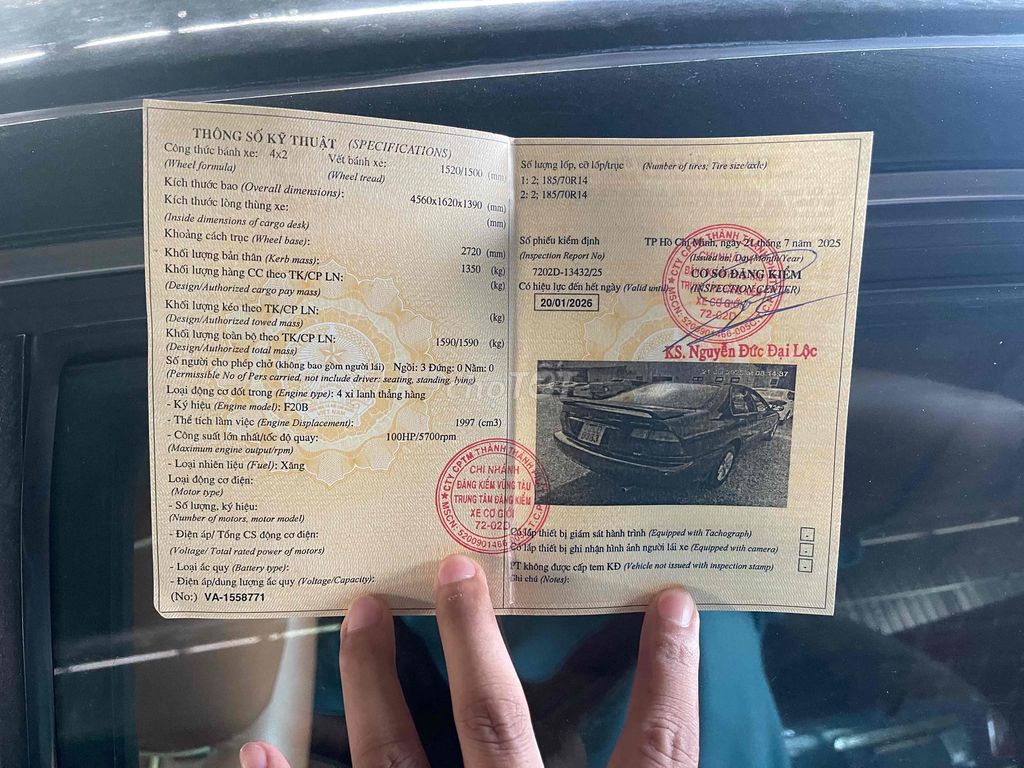 THÔNG SỐ KỸ THUẬT (SPECIFICATIONS)
Công thức bánh xe: 4x2 Vết bánh xe: 1520/1500 (mm)
(Wheel formula) (Wheel tread)
Kích thước bao (Overall dimensions): 4560x1620x1390 (mm)
Kích thước lòng thùng xe: (mm)
(Inside dimensions of cargo desk)
Khoảng cách trục (Wheel base): 2720 (mm)
Khối lượng bản thân (Kerb mass): 1350 (kg)
Khối lượng hàng CC theo TK/CP LN: (kg)
(Design/Authorized cargo pay mass)
Khối lượng kéo theo TK/CP LN: (kg)
(Design/Authorized towed mass)
Khối lượng toàn bộ theo TK/CP LN: 1590/1590 (kg)
(Design/Authorized total mass)
Số người cho phép chở (không bao gồm người lái) Ngồi: 3 Đứng: 0 Nằm: 0
(Permissible No of Pers carried, not include driver: seating, standing, lying)
Loại động cơ đốt trong (Engine type): 4 xi lanh thẳng hàng
- Ký hiệu (Engine model): F20B
- Thể tích làm việc (Engine Displacement): 1997 (cm3)
- Công suất lớn nhất/tốc độ quay: 100HP/5700rpm
(Maximum engine output/rpm)
- Loại nhiên liệu (Fuel): Xăng
Loại động cơ điện:
(Motor type)
- Số lượng, ký hiệu:
(Number of motors, motor model)
- Điện áp/ Tổng CS động cơ điện:
(Voltage/ Total rated power of motors)
- Loại ắc quy (Battery type):
- Điện áp/dung lượng ắc quy (Voltage/Capacity):
(No:) VA-1558771
CTY CPTM THÀNH THÀNH
CHI NHÁNH
ĐĂNG KIỂM VŨNG TÀU
TRUNG TÂM ĐĂNG KIỂM
XE CƠ GIỚI
72-02D
MSCN: 5200901466
Số lượng lốp, cỡ lốp/trục (Number of tires; Tire size/axle)
1: 2; 185/70R14
2: 2; 185/70R14
Số phiếu kiểm định TP Hồ Chí Minh, ngày 21 tháng 7 năm 2025
(Inspection Report No) (Issued on: Day/Month/Year)
7202D-13432/25 CƠ SỞ ĐĂNG KIỂM
Có hiệu lực đến hết ngày (Valid until) (INSPECTION CENTER)
20/01/2026
XE CƠ GIỚI
72-02D
MSCN: 5200901466-005
KS. Nguyễn Đức Đại Lộc
Có lắp thiết bị giám sát hành trình (Equipped with Tachograph) -
Có lắp thiết bị ghi nhận hình ảnh người lái xe (Equipped with camera) -
PT không được cấp tem KĐ (Vehicle not issued with inspection stamp) -
Ghi chú (Notes):